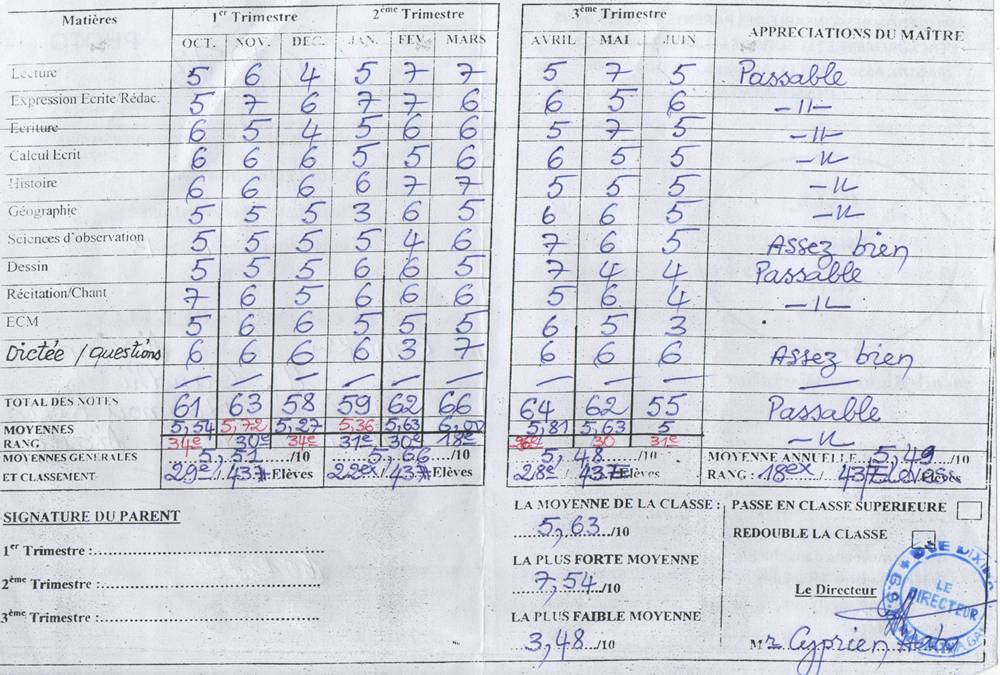 Matières 1er Trimestre 2ème Trimestre 3ème Trimestre APPRECIATIONS DU MAÎTRE
OCT. NOV. DEC. JAN. FEV. MARS AVRIL MAI JUIN
Lecture 5 6 4 5 7 7 5 7 5 Passable
Expression Ecrite/Rédac. 5 7 6 7 7 6 6 5 6 -11-
Ecriture 6 5 4 5 6 6 5 7 5 -11-
Calcul Ecrit 6 6 6 5 5 6 6 5 5 -11-
Histoire 6 6 6 6 7 7 5 5 5 -11-
Géographie 5 5 5 3 6 5 6 6 5 -11-
Sciences d'observation 5 5 5 5 4 6 7 6 5 Assez bien
Dessin 5 5 5 6 6 5 7 4 4 Passable
Récitation/Chant 7 6 5 6 6 6 5 6 4 -11-
ECM 5 6 6 5 5 5 6 5 3
Dictée / questions 6 6 6 6 3 7 6 6 6 Assez bien
TOTAL DES NOTES 61 63 58 59 62 66 64 62 55 Passable
MOYENNES 5,54 5,72 5,27 5,36 5,63 6,00 5,81 5,63 5
RANG 34e 30e 34e 31e 30e 18e 30 31e -11-
MOYENNES GENERALES 5,51 /10 5,66 /10 5,48 /10 MOYENNE ANNUELLE 5,49 /10
ET CLASSEMENT 29e / 437 Elèves 22ex / 437 Elèves 28e / 437 Elèves RANG : 18ex 437 Elèves
SIGNATURE DU PARENT LA MOYENNE DE LA CLASSE : PASSE EN CLASSE SUPERIEURE
5,63 /10 REDOUBLE LA CLASSE
1er Trimestre :
LA PLUS FORTE MOYENNE
2ème Trimestre : 7,54 /10 Le Directeur
3ème Trimestre : LA PLUS FAIBLE MOYENNE
3,48 /10 Mr Cyprien
LE
DIRECTEUR